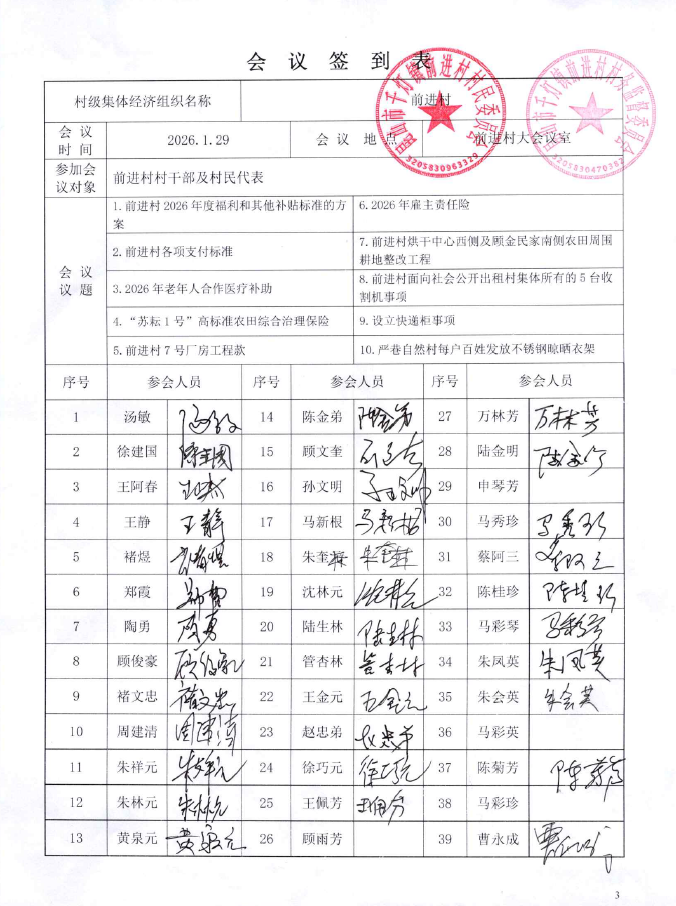 会 议 签 到 表
村级集体经济组织名称 前进村
会 议 时 间 2026.1.29 会 议 地 点 前进村大会议室
参加会议对象 前进村村干部及村民代表
会 议 议 题
1.前进村2026年度福利和其他补贴标准的方案 6.2026年雇主责任险
2.前进村各项支付标准 7.前进村烘干中心西侧及顾金民家南侧农田周围耕地整改工程
3.2026年老年人合作医疗补助 8.前进村面向社会公开出租村集体所有的5台收割机事项
4.“苏耘1号”高标准农田综合治理保险 9.设立快递柜事项
5.前进村7号厂房工程款 10.严巷自然村每户百姓发放不锈钢晾晒衣架
序号 参会人员 序号 参会人员 序号 参会人员
1 汤敏 汤敏 14 陈金弟 陈金弟 27 万林芳 万林芳
2 徐建国 徐建国 15 顾文奎 顾文奎 28 陆金明 陆金明
3 王阿春 王阿春 16 孙文明 孙文明 29 申琴芳
4 王静 王静 17 马新根 马新根 30 马秀珍 马秀珍
5 褚煜 褚煜 18 朱奎 朱奎林 31 蔡阿三 蔡阿三
6 郑霞 郑霞 19 沈林元 沈林元 32 陈桂珍 陈桂珍
7 陶勇 陶勇 20 陆生林 陆生林 33 马彩琴 马彩琴
8 顾俊豪 顾俊豪 21 管杏林 管杏林 34 朱凤英 朱凤英
9 褚文忠 褚文忠 22 王金元 王金元 35 朱会英 朱会英
10 周建清 周建清 23 赵忠弟 赵忠弟 36 马彩英
11 朱祥元 朱祥元 24 徐巧元 徐巧元 37 陈菊芳 陈菊芳
12 朱林元 朱林元 25 王佩芳 王佩芳 38 马彩珍
13 黄泉元 黄泉元 26 顾雨芳 39 曹永成 曹永成
昆山市千灯镇前进村村民委员会
3205830963320
昆山市千灯镇前进村村务监督委员会
3205830470382
3